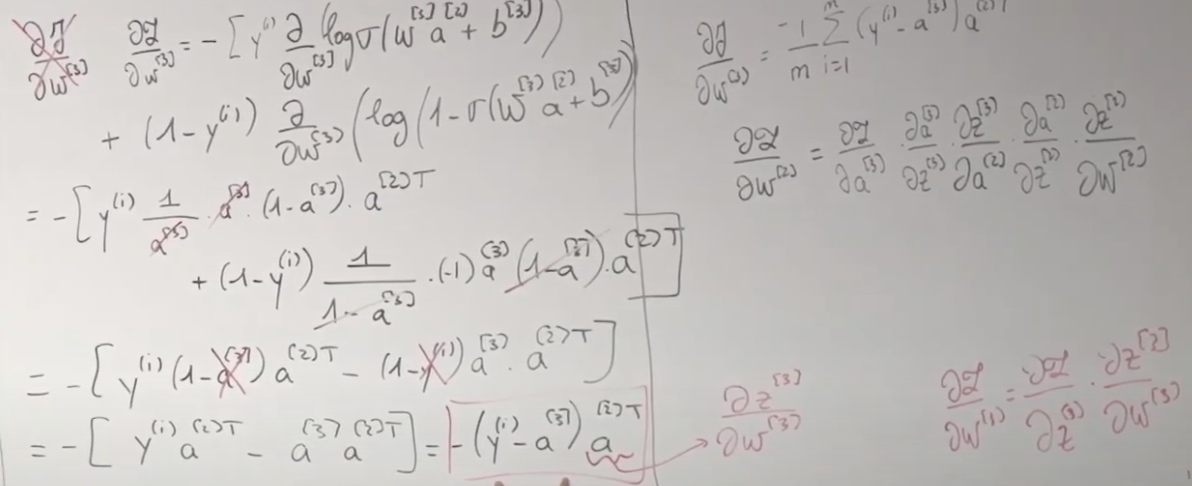 ∂J/∂w^[3] ∂ℒ/∂w^[3] = -[y^(i) ∂/∂w^[3] (log σ(w^[3] a^[2] + b^[3]))
+ (1-y^(i)) ∂/∂w^[3] (log(1-σ(w^[3] a^[2] + b^[3])
= -[y^(i) 1/a^[3] · a^[3] · (1-a^[3]) · a^[2]T
+ (1-y^(i)) 1/(1-a^[3]) · (-1) a^[3] (1-a^[3]) · a^[2]T]
= -[y^(i) (1-a^[3]) a^[2]T - (1-y^(i)) a^[3] · a^[2]T]
= -[y^(i) a^[2]T - a^[3] a^[2]T] = -(y^(i) - a^[3]) a^[2]T
∂J/∂w^[3] = -1/m Σ_{i=1}^m (y^(i) - a^[3]) a^[2]T
∂ℒ/∂w^[2] = ∂ℒ/∂a^[3] · ∂a^[3]/∂z^[3] · ∂z^[3]/∂a^[2] · ∂a^[2]/∂z^[2] · ∂z^[2]/∂w^[2]
∂z^[3]/∂w^[3]
∂ℒ/∂w^[1] = ∂ℒ/∂z^[3] · ∂z^[2]/∂w^[3]